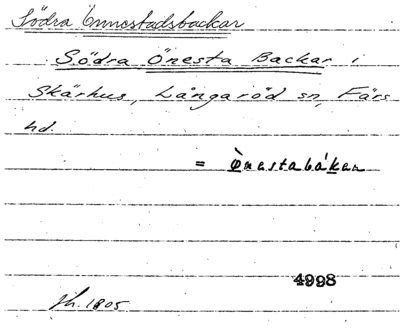 Södra Önnestadsbackar
Södra Önesta Backar i
Skärhus, Långaröd sn, Färs
hd.
= Önestabåken
4998
Jh. 1805